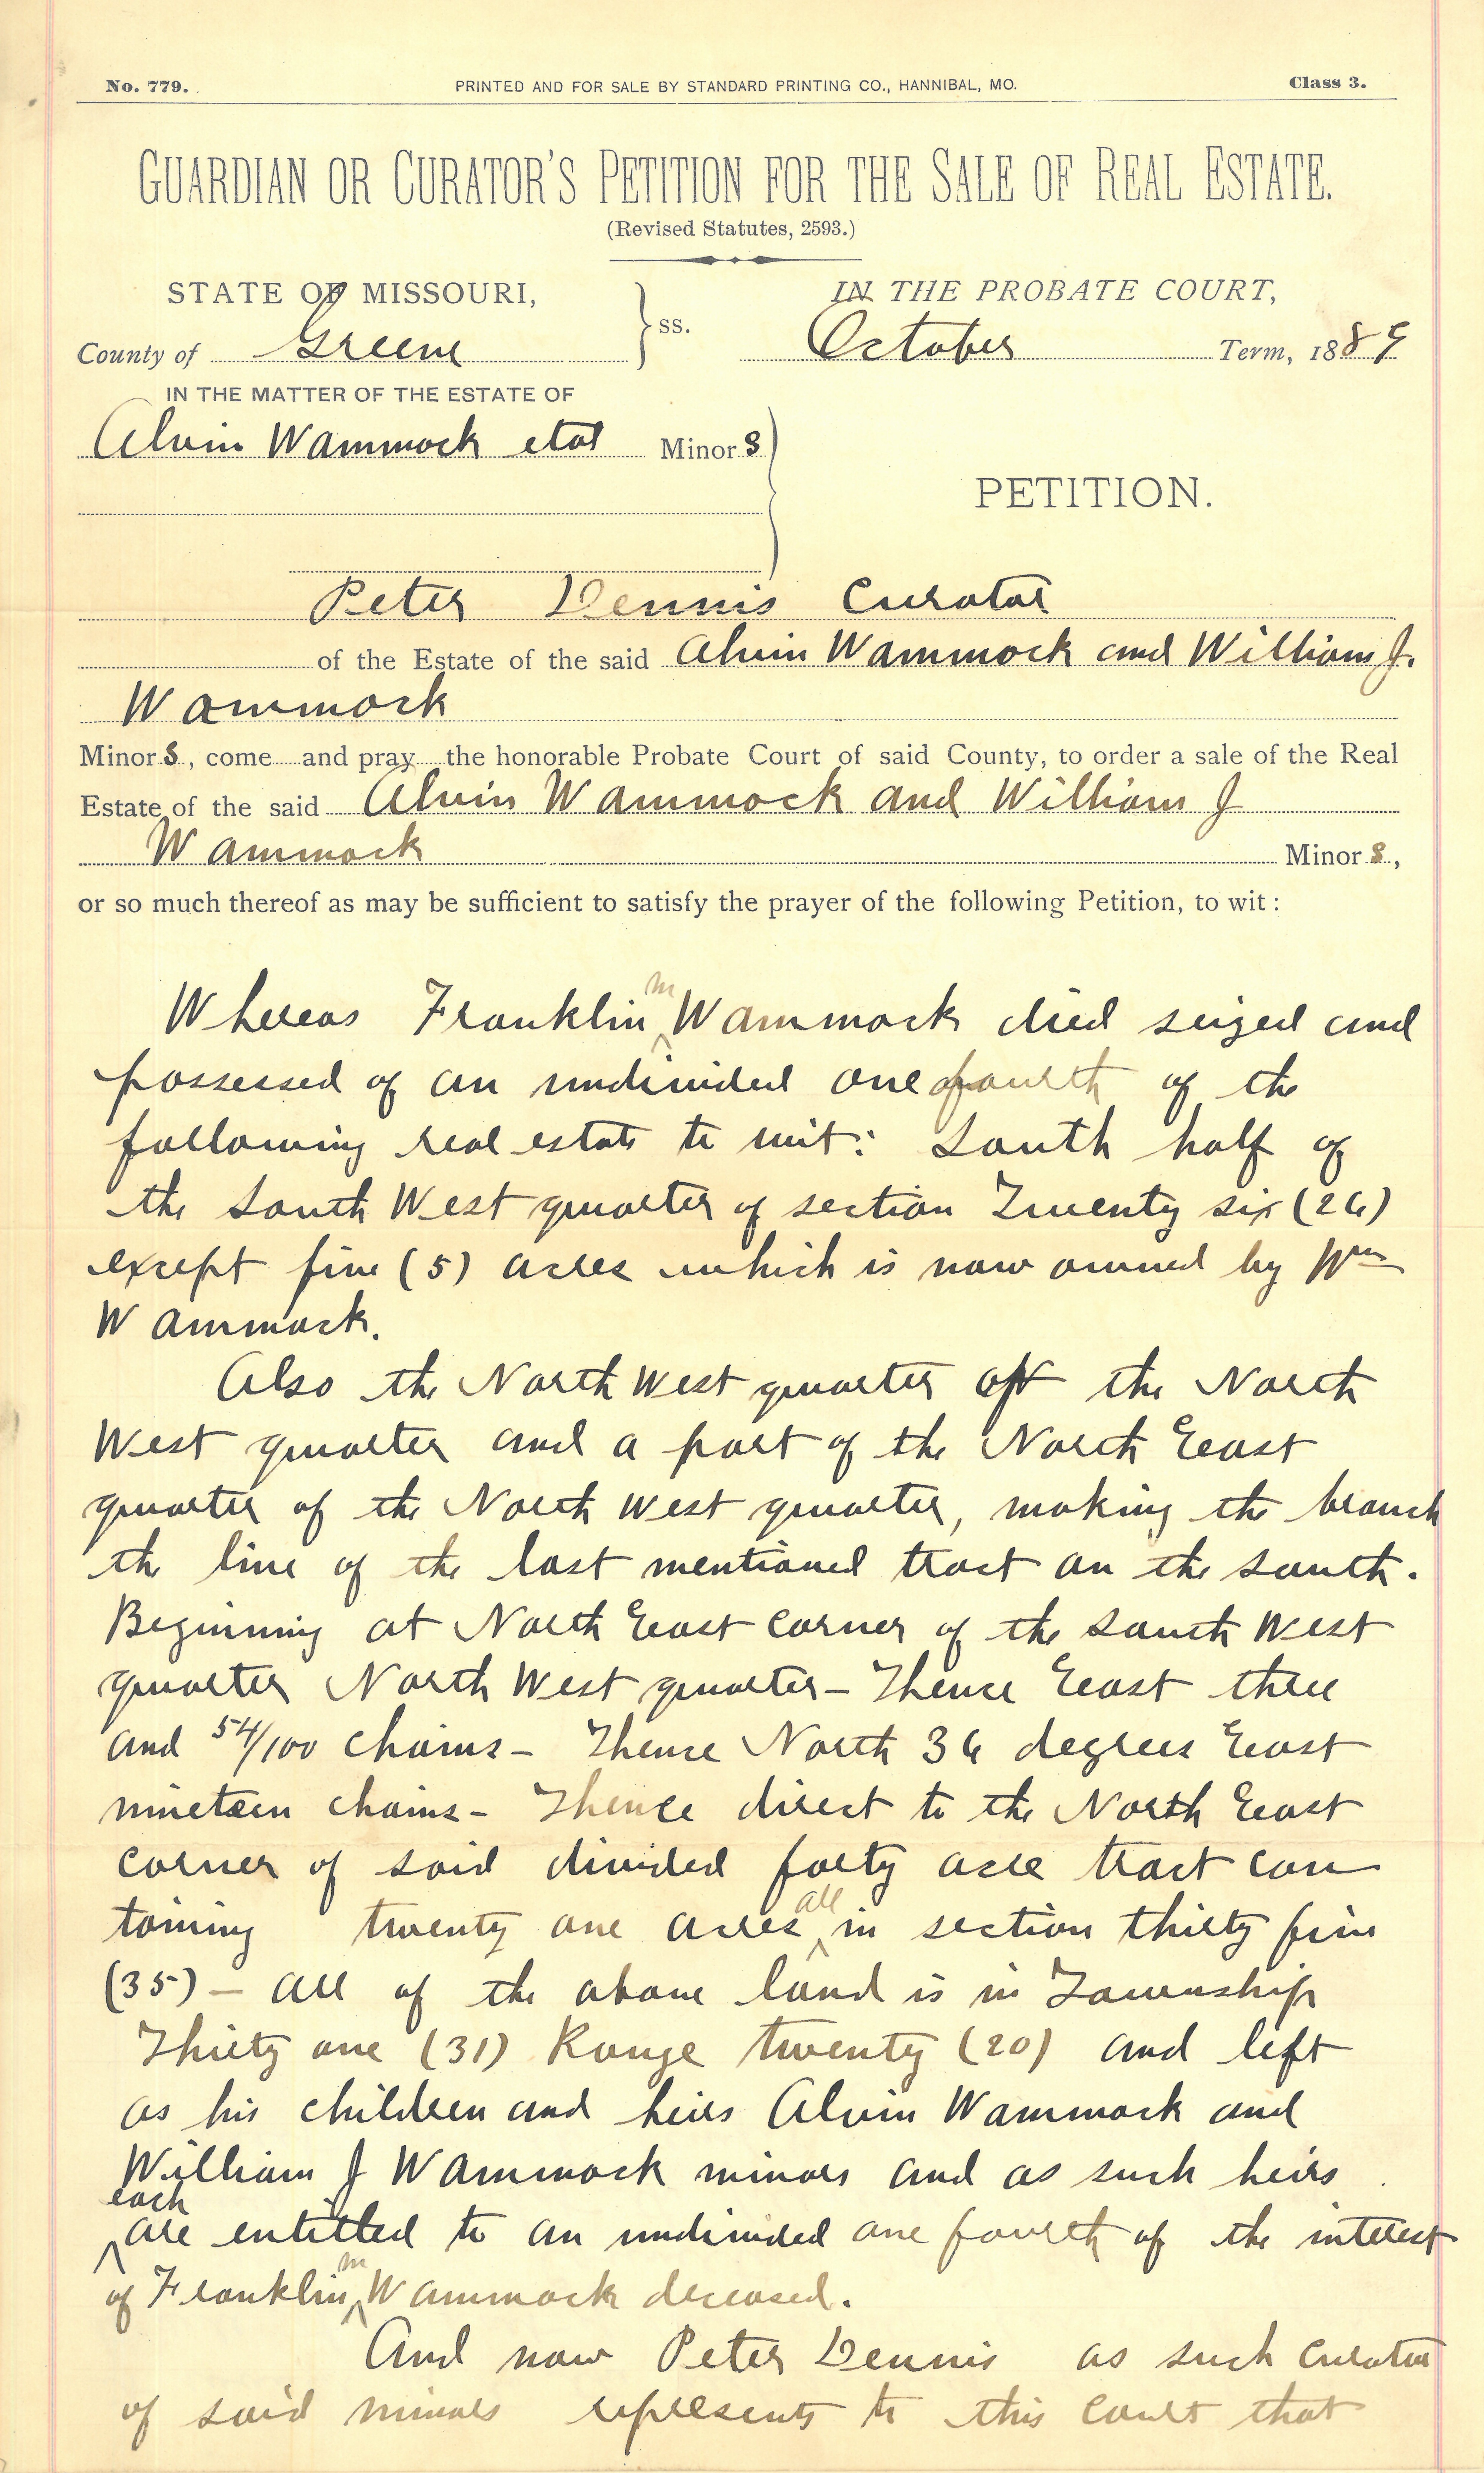 No. 779. PRINTED AND FOR SALE BY STANDARD PRINTING CO., HANNIBAL, MO. Class 3.
GUARDIAN OR CURATOR'S PETITION FOR THE SALE OF REAL ESTATE.
(Revised Statutes, 2593.)
STATE OF MISSOURI, IN THE PROBATE COURT,
County of Greene ss. October Term, 1889
IN THE MATTER OF THE ESTATE OF
Alvin Wammock etal Minors
PETITION.
Peter Dennis Curator
of the Estate of the said Alvin Wammock and William J.
Wammock
Minors, come and pray the honorable Probate Court of said County, to order a sale of the Real
Estate of the said Alvin Wammock and William J
Wammock Minors,
or so much thereof as may be sufficient to satisfy the prayer of the following Petition, to wit:
Whereas Franklin m Wammock died seized and
possessed of an undivided one fourth of the
following real estate to wit: South half of
the South West quarter of section Twenty six (26)
except five (5) acres which is now owned by Wm
Wammock.
Also the North West quarter of the North
West quarter and a part of the North East
quarter of the North West quarter, making the branch
the line of the last mentioned tract on the south.
Beginning at North East corner of the South West
quarter North West quarter - Thence East three
and 54/100 chains - Thence North 36 degrees East
nineteen chains - Thence direct to the North East
corner of said divided forty acre tract con
taining twenty one acres all in section thirty five
(35) - All of the above land is in Township
Thirty one (31) Range twenty (20) and left
as his children and heirs Alvin Wammock and
William J Wammock minors and as such heirs
each are entitled to an undivided one fourth of the interest
of Franklin m Wammock deceased.
And now Peter Dennis as such curator
of said minors represents to this court that